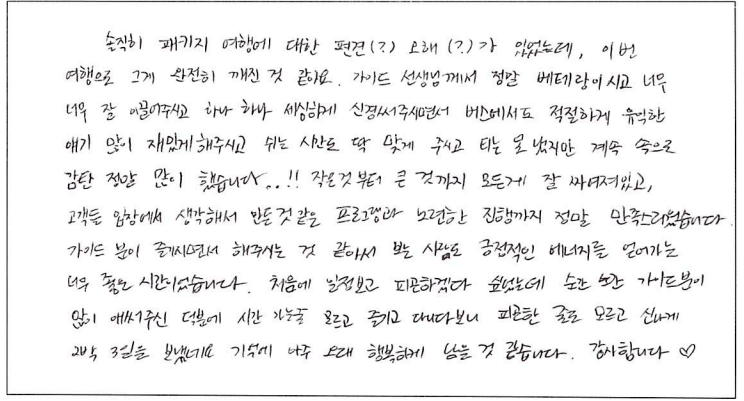 솔직히 패키지 여행에 대한 편견(?) 오해(?)가 있었는데, 이번
여행으로 그게 완전히 깨진 것 같아요. 가이드 선생님께서 정말 베테랑이시고 너무
너무 잘 이끌어주시고 하나 하나 세심하게 신경써주시면서 버스에서도 적절하게 유익한
얘기 많이 재밌게해주시고 쉬는 시간도 딱 맞게 주시고 티는 못 냈지만 계속 속으로
감탄 정말 많이 했습니다..!! 작은것부터 큰 것까지 모든게 잘 짜여져있고,
고객들 입장에서 생각해서 만든것같은 프로그램과 노련한 진행까지 정말 만족스러웠습니다.
가이드 분이 즐기시면서 해주시는 것 같아서 보는 사람도 긍정적인 에너지를 얻어가는
너무 좋은 시간이었습니다. 처음에 일정보고 피곤하겠다 싶었는데 순간 순간 가이드분이
많이 애써주신 덕분에 시간 가는줄 모르고 즐기고 다니다보니 피곤한 줄도 모르고 신나게
2박 3일을 보냈네요 기억에 아주 오래 행복하게 남을 것 같습니다. 감사합니다 ♡